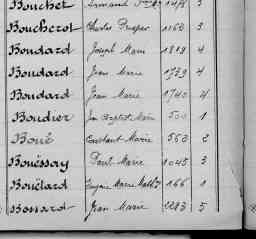 Bouchet Armand
Boucherot Charles Prosper 1168 3
Boudard Joseph Marie 1819 4
Boudard Jean Marie 1739 4
Boudard Jean Marie 1740 4
Boudier Jn Baptiste Marie 500 1
Boué Constant Marie 563 2
Bouëssay Paul Marie 1045 3
Bouëtard Eugène Marie 166 1
Boussard Jean Marie 2283 5